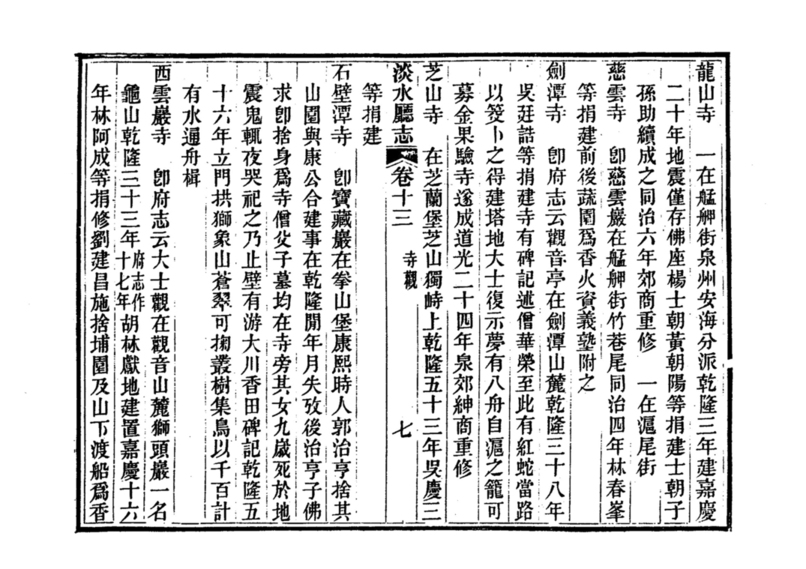 龍山寺　一在艋舺街泉州安海分派乾隆三年建嘉慶
二十年地震僅存佛座楊士朝黃朝陽等捐建士朝子
孫助續成之同治六年郊商重修　一在滬尾街
慈雲寺　卽慈雲巖在艋舺街竹巷尾同治四年林春峯
等捐建前後蔬園爲香火資義塾附之
劍潭寺　卽府志云觀音亭在劍潭山麓乾隆三十八年
吳廷誥等捐建寺有碑記述僧華榮至此有紅蛇當路
以筊卜之得建塔地大士復示夢有八舟自滬之籠可
募金果驗寺遂成道光二十四年泉郊紳商重修
芝山寺　在芝蘭堡芝山獨峙上乾隆五十三年吳慶三
淡水廳志　卷十三　寺觀　七
等捐建
石壁潭寺　卽寶藏巖在拳山堡康熙時人郭治亨捨其
山園與康公合建事在乾隆閒年月失攷後治亨子佛
求卽捨身爲寺僧父子墓均在寺旁其女九歲死於地
震鬼輒夜哭祀之乃止壁有游大川香田碑記乾隆五
十六年立門拱獅象山蒼翠可掬叢樹集鳥以千百計
有水通舟楫
西雲巖寺　卽府志云大士觀在觀音山麓獅頭巖一名
龜山乾隆三十三年府志作十七年胡林獻地建置嘉慶十六
年林阿成等捐修劉建昌施捨埔園及山下渡船爲香